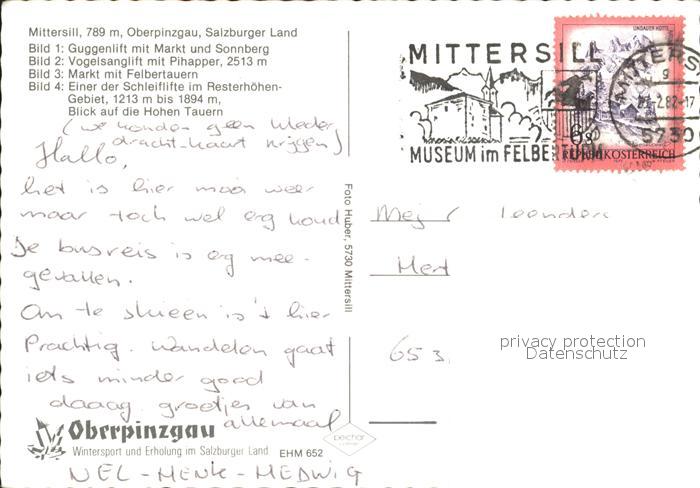 Mittersill, 789 m, Oberpinzgau, Salzburger Land
Bild 1: Guggenlift mit Markt und Sonnberg
Bild 2: Vogelsanglift mit Pihapper, 2513 m
Bild 3: Markt mit Felbertauern
Bild 4: Einer der Schleiflifte im Resterhöhen-
Gebiet, 1213 m bis 1894 m,
Blick auf die Hohen Tauern
(we konden geen kleder
dracht-kaart krijgen)
Hallo,
het is hier mooi weer
maar toch wel erg koud
De busreis is erg mee-
gevallen.
Om te skieen is 't hier
Prachtig. Wandelen gaat
iets minder goed
daaag groetjes van
allemaal
NEL - HENK - HEDWIG
Oberpinzgau
Wintersport und Erholung im Salzburger Land
EHM 652
Foto Huber, 5730 Mittersill
pechar
MITTERSILL
MUSEUM im FELBERTURM
LINDAUER HÜTTE
REPUBLIK ÖSTERREICH
5730
Leenders
privacy protection
Datenschutz